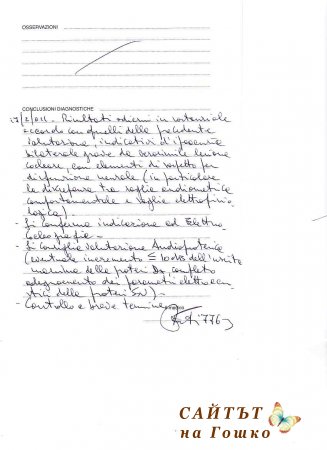 OSSERVAZIONI
CONCLUSIONI DIAGNOSTICHE
Risultati odierni in sostanziale
accordo con quelli della precedente
valutazione, indicativi d'ipoacusia
bilaterale grave da verosimile lesione
cocleare, con elementi di sospetto per
disfunzione neurale (in particolare
la discrepanza tra soglia audiometrica
comportamentale e soglia elettrofisio-
logica).
- Si conferma indicazione ad Elettro
Cocleografia -
- Si consiglia valutazione Audioprotesica
(eventuale incremento ≤ 10 dB dell'uscita
massima della protesi Dx, completo
adeguamento dei parametri elettroacu-
stici della protesi Sn).
- Controllo a breve termine
САЙТЪТ
на Гошко